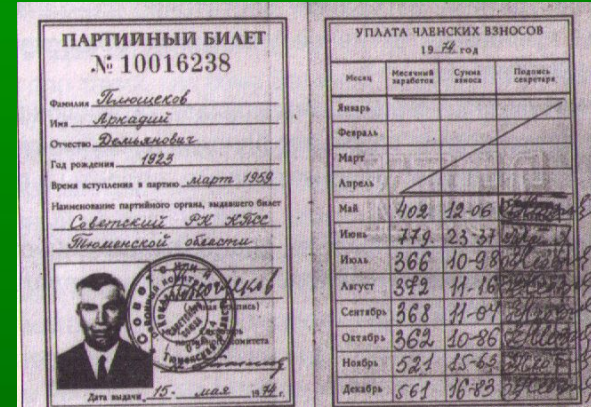 ПАРТИЙНЫЙ БИЛЕТ
№ 10016238
Фамилия Плюшеков
Имя Аркадий
Отчество Демьянович
Год рождения 1923
Время вступления в партию март 1959
Наименование партийного органа, выдавшего билет
Советский РК КПСС
Тюменской области
Дата выдачи 15. мая 1974 г.
УПЛАТА ЧЛЕНСКИХ ВЗНОСОВ
1974 год
Месяц Месячный заработок Сумма взноса Подпись секретаря
Январь
Февраль
Март
Апрель
Май 402 12-06
Июнь 779 23-37
Июль 366 10-98
Август 372 11-16
Сентябрь 368 11-04
Октябрь 362 10-86
Ноябрь 521 15-63
Декабрь 561 16-83